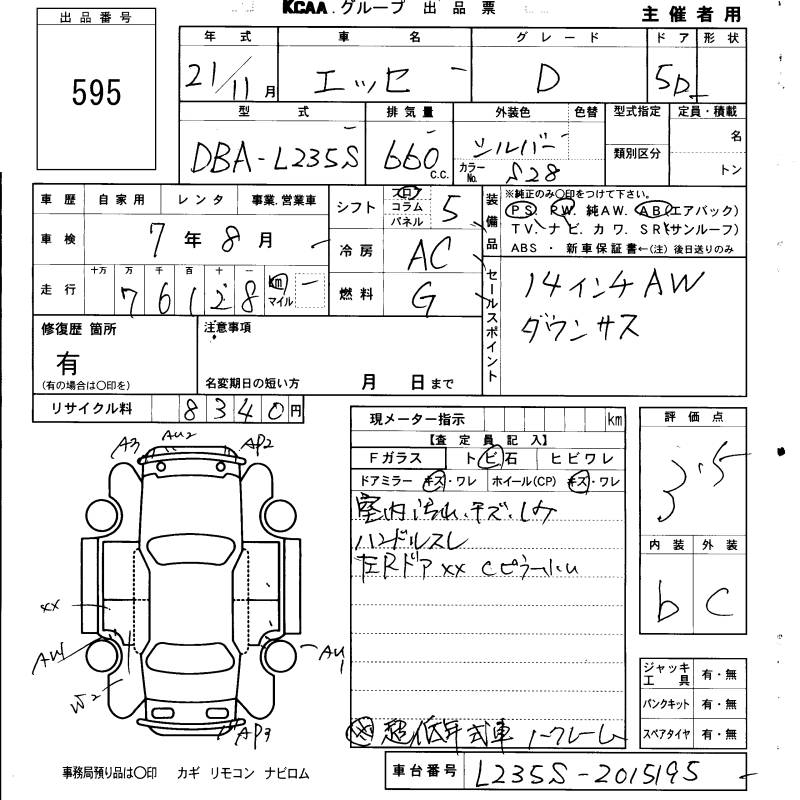 KCAA.グループ 出品票
主催者用
出品番号
595
年式 車名 グレード ドア 形状
21/11月 エッセ D 5D
型式 排気量 外装色 色替 型式指定 定員・積載
DBA-L235S 660 c.c. シルバー カラーNo. S28 類別区分 名 トン
車歴 自家用 レンタ 事業.営業車
車検 7年8月
走行 十万 万 千 百 十 一
76128 km マイル
シフト フロ コラム パネル 5
冷房 AC
燃料 G
装備品 ※純正のみ○印をつけて下さい。
PS. PW. 純AW. AB(エアバック)
TV. ナビ. カワ. SR(サンルーフ)
ABS ・ 新車保証書←(注) 後日送りのみ
セールスポイント
14インチAW
ダウンサス
修復歴 箇所
有
(有の場合は○印を)
注意事項
名変期日の短い方 月 日まで
リサイクル料 8340円
現メーター指示 km
【査定員記入】
Fガラス トビ石 ヒビワレ
ドアミラー キズ・ワレ ホイール(CP) キズ・ワレ
室内汚れ.キズ.シミ
ハンドルスレ
左Rドアxx Cピラー
超低年式車 ノークレーム
評価点
3.5
内装 外装
b C
ジャッキ工具 有・無
パンクキット 有・無
スペアタイヤ 有・無
A3 AU2 AP2
xx
W2
AU1
AP3
事務局預り品は○印 カギ リモコン ナビロム
車台番号 L235S-2015195